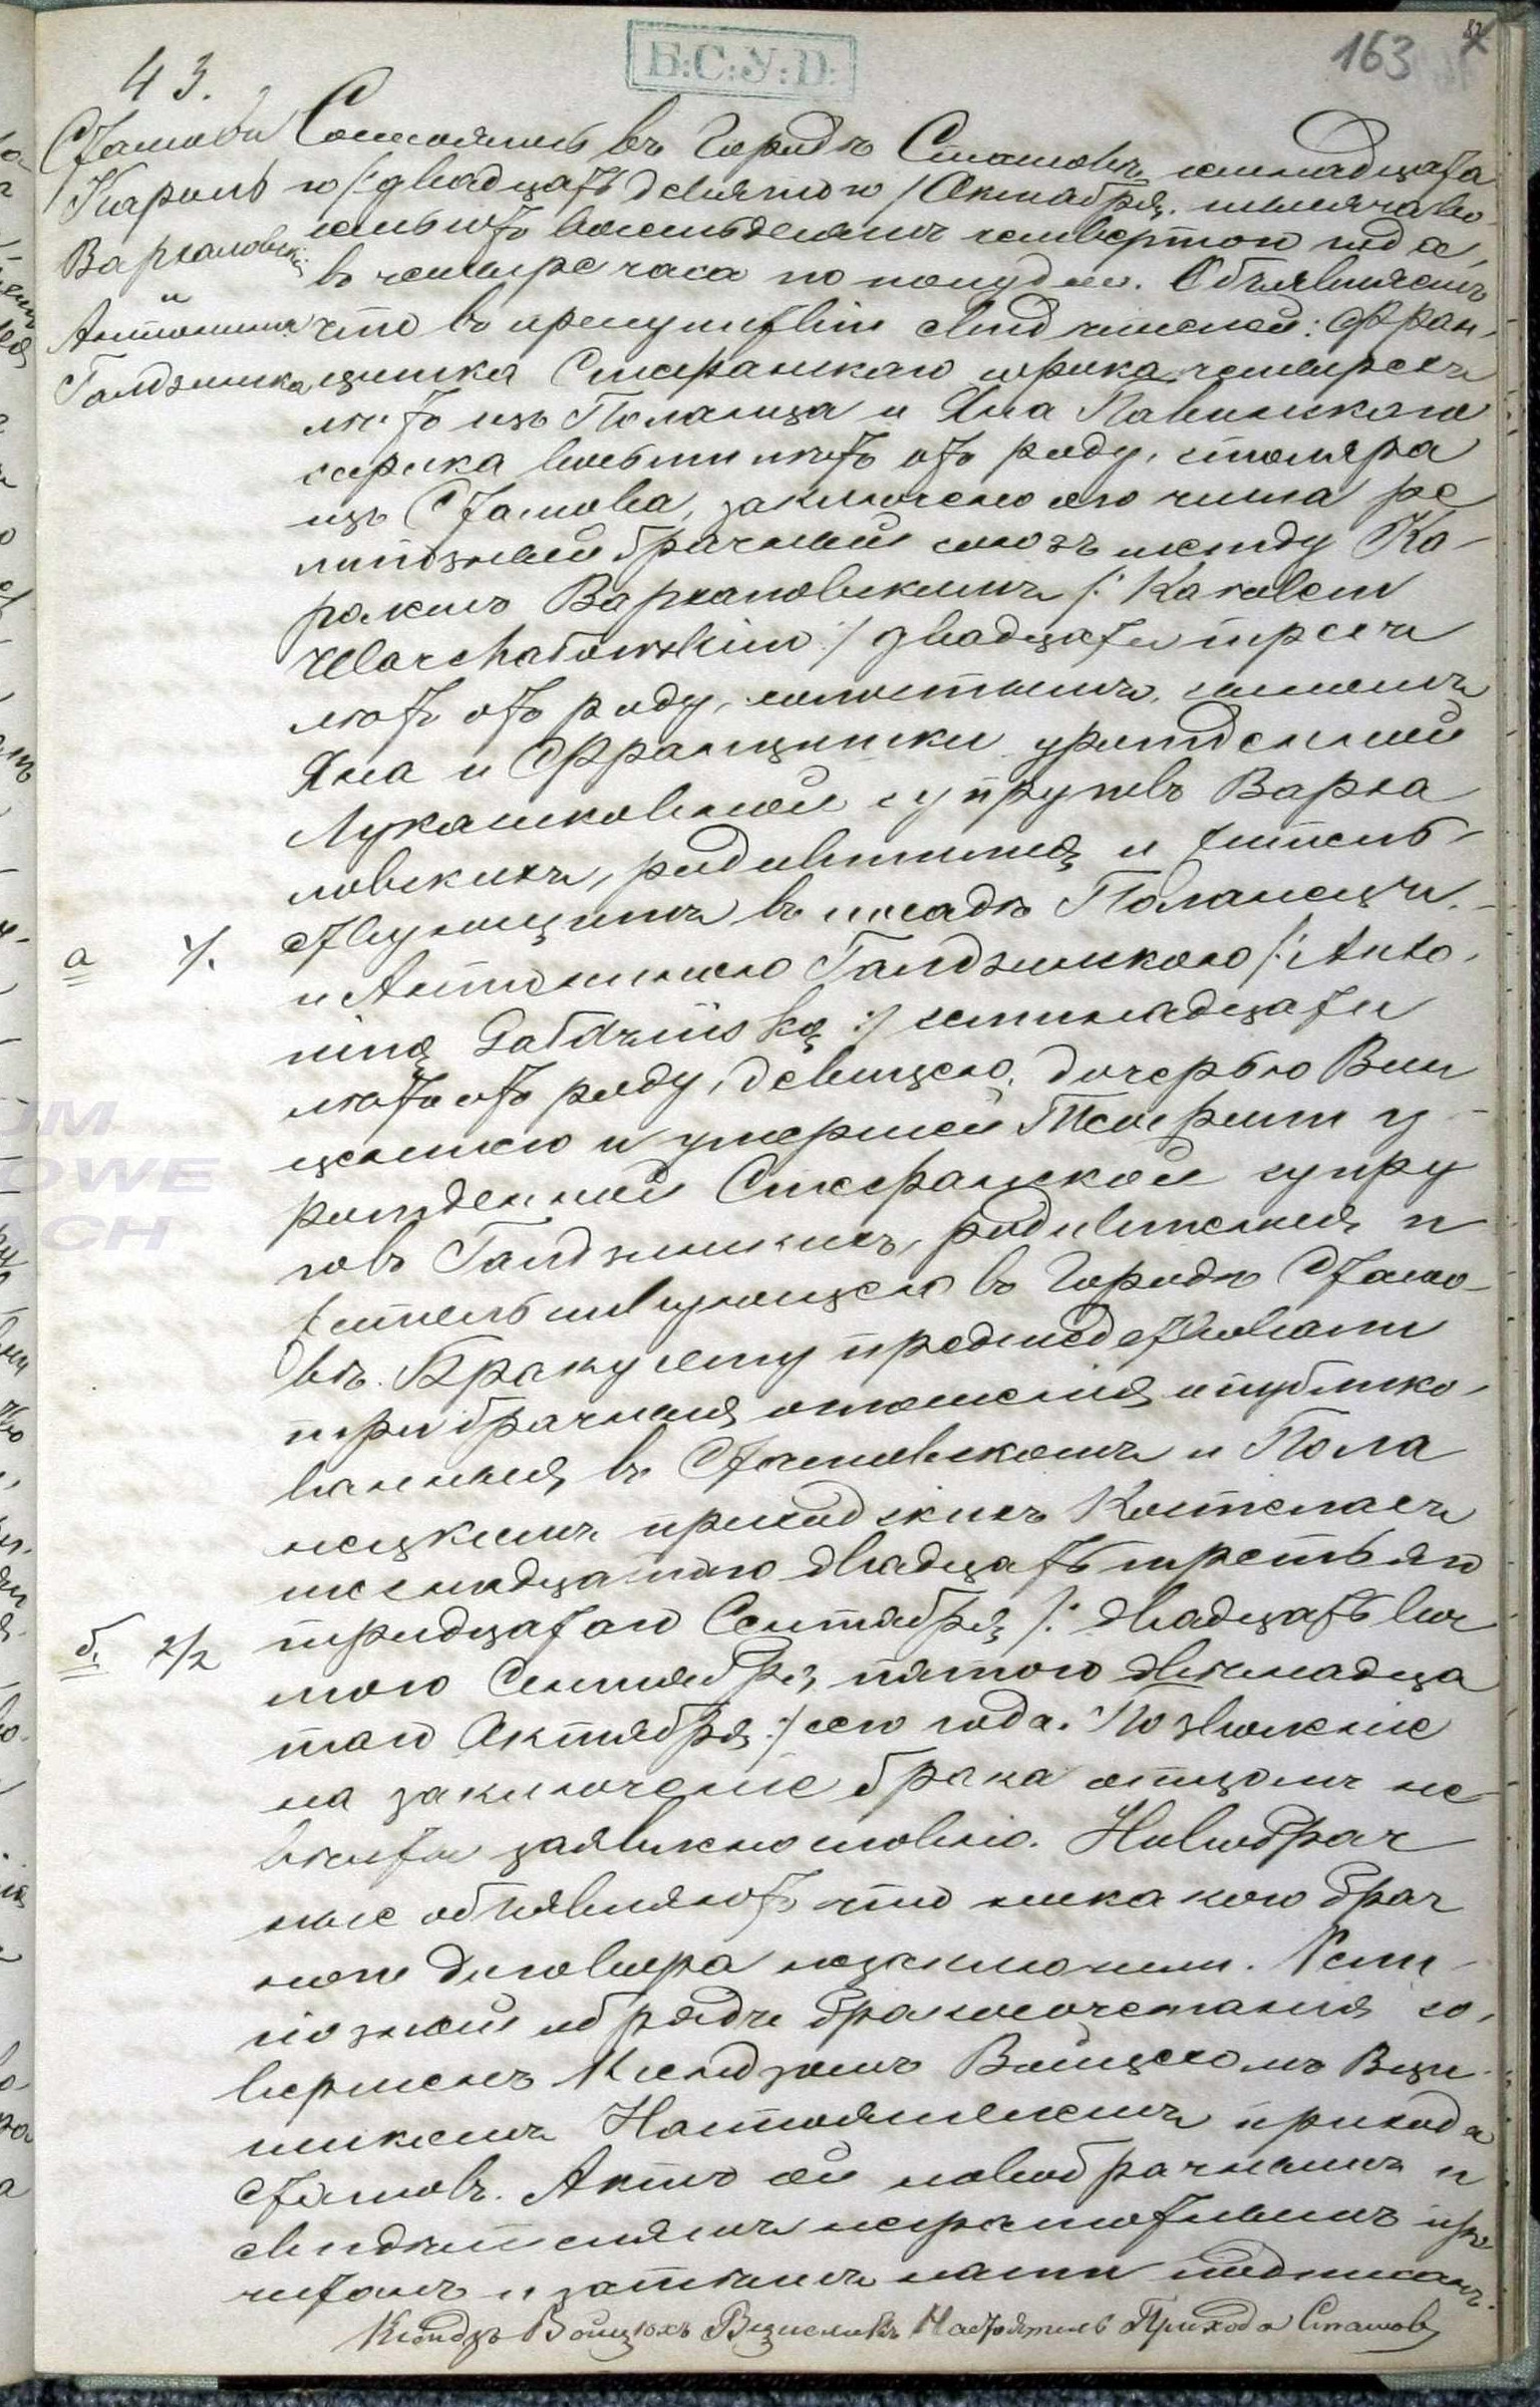 163
Б:С:У:D:
43.
Сташовъ
Кароль
Вархаловскій
и
Антонина
Галдзинска
Состоялось въ Городѣ Сташовѣ семнадцата
го /: двадцать девятого / Октября тысяча во
семьсотъ восемьдесятъ четвертого года,
въ четыре часа по полудни. Объявляемъ
что въ присутствіи свидѣтелей: Фран
цишка Сиеранскаго сорока четырехъ
лѣтъ изъ Поланца и Яна Павинскаго
сорока восьми лѣтъ отъ роду, столяра
изъ Сташова, заключено сего числа ре
лигіозный брачный союзъ между Ка-
ролемъ Вархаловскимъ /: Karolem
Warchałowskim :/ двадцати трехъ
лѣтъ отъ роду, холостымъ, сыномъ
Яна и Францишки урожденной
Лукашковной супруговъВарха
ловскихъ, родившимся и житель
ствующимъ въ посадѣ Поланецъ.
а 1/. и Антониною Галдзинскою /: Anto
niną Gałdzińską :/ семнадцати
лѣтъ отъ роду, девицею, дочерью Вин
центего и умершей Маріи у
рожденной Сиеранской супру
говъ Галдзинскихъ, родившеюся и
жительствующею въ Городѣ Сташо-
вѣ. Браку сему предшествовали
три брачныя оглашенія опублико
ванныя въ Сташовскомъ и Пола
нецкимъ приходскихъ Костелахъ
шеснадцатаго двадцать третьяго
б. 2/2 тридцатаго Сентября /: двадцать вос
мого Сентября, пятого двѣнадца
таго Октября :/ сего года. Позволеніе
на заключеніе брака отцомъ не
вѣсты заявлено словно. Новобрач
ные объявляютъ что никакого брач
ного договора незаключили. Рели
гіозный обрядъ бракосочетанія со
вершенъ Ксендзомъ Войцехомъ Вци
сликомъ Настоятелемъ прихода
Сташовъ. Актъ сей новобрачнымъ и
свидѣтелямъ неграмотнымъ про
читанъ и затѣмъ нами подписанъ.
Ксендзъ Войцѣхъ Вцисликъ Настоятель Прихода Сташовъ